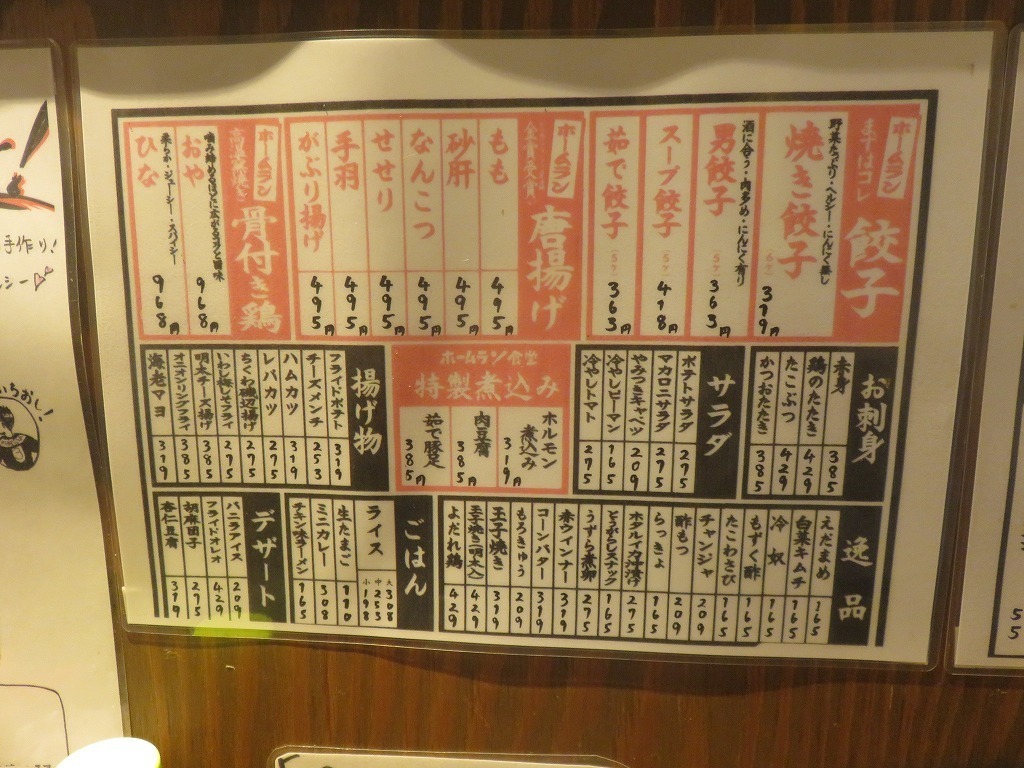 まずはコレ
ホームラン
餃子
野菜たっぷり・ヘルシー・にんにく無し
焼き餃子
(6ケ)
319円
酒に合う・肉多め・にんにく有り
男餃子
(5ケ)
363円
スープ餃子
(5ケ)
418円
茹で餃子
(5ケ)
363円
ホームラン
唐揚げ
もも
495円
砂肝
495円
なんこつ
495円
せせり
495円
手羽
495円
がぶり揚げ
495円
ホームラン
骨付き鶏
噛み締めるほどに広がるコクと旨味
おや
968円
柔らか・ジューシー・スパイシー
ひな
968円
お刺身
赤身
385
鶏のたたき
429
たこぶつ
429
かつおたたき
385
サラダ
ポテトサラダ
275
マカロニサラダ
275
やみつきキャベツ
209
冷やしピーマン
165
冷やしトマト
275
ホームラン食堂
特製煮込み
ホルモン煮込み
319円
肉豆腐
385円
茹で豚足
385円
揚げ物
フライドポテト
319
チーズメンチ
253
ハムカツ
319
レバカツ
275
ちくわ磯辺揚げ
275
いわし梅しそフライ
275
明太チーズ揚げ
385
オニオンリングフライ
385
海老マヨ
319
逸品
えだまめ
165
白菜キムチ
165
冷奴
165
もずく酢
165
たこわさび
165
チャンジャ
209
酢もつ
209
らっきょ
165
ホタルイカ沖漬け
275
とうがらしスナック
165
うずら煮卵
275
赤ウィンナー
319
コーンバター
319
もろきゅう
209
玉子焼き
319
玉子焼き(明太入)
429
よだれ鶏
429
ごはん
ライス
大308
中253
小198
生たまご
110
ミニカレー
308
チキン味ラーメン
165
デザート
バニラアイス
209
フライドオレオ
429
胡麻団子
275
杏仁豆腐
319
手作り!
いちおし!